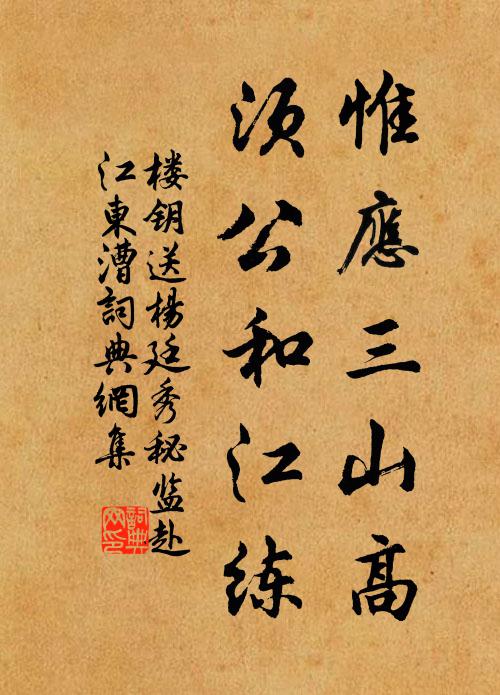 惟應三山高
須公和江练
楼钥送楊廷秀秘监赴
江東漕詞典網集
詞典
网印